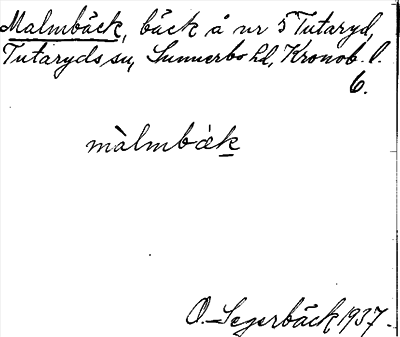 Malmbäck, bäck å nr 5 Tutaryd,
Tutaryds sn, Sunnerbo hd, Kronob. l.
6.
màlmbæ̀k
O. Segerbäck 1937.